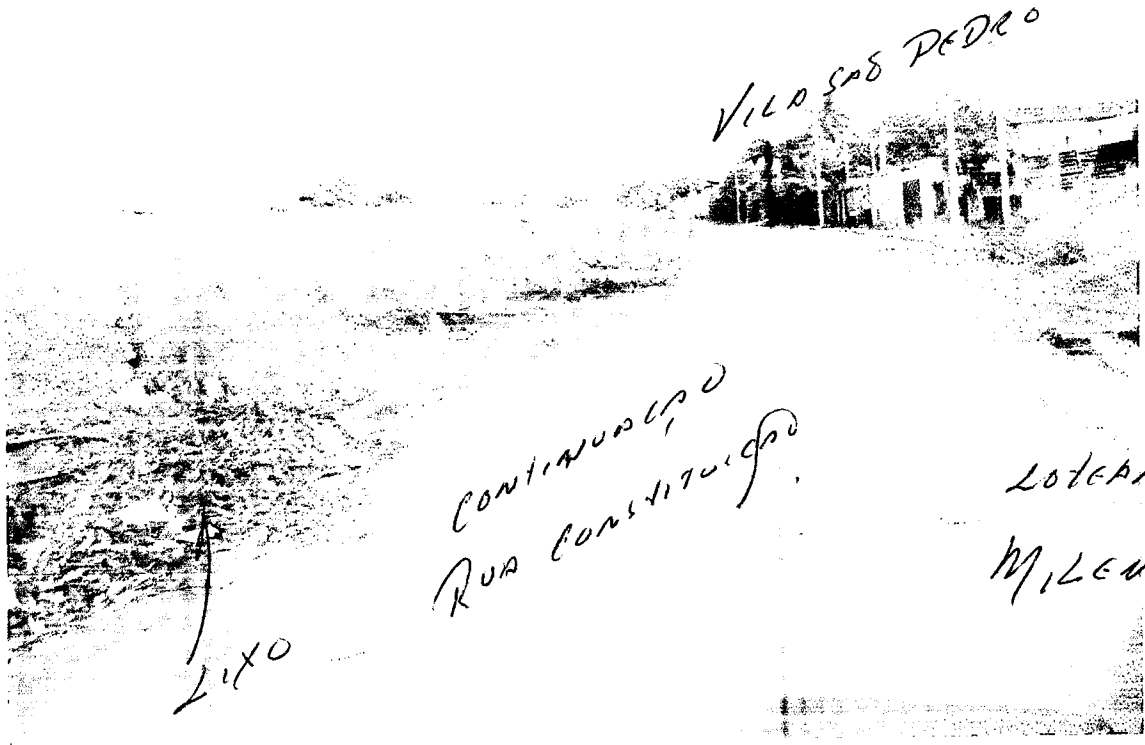 VILA SAO PEDRO
CONTINUAÇAO
RUA CONSTITUIÇAO
LOTEA
MILEN
LIXO